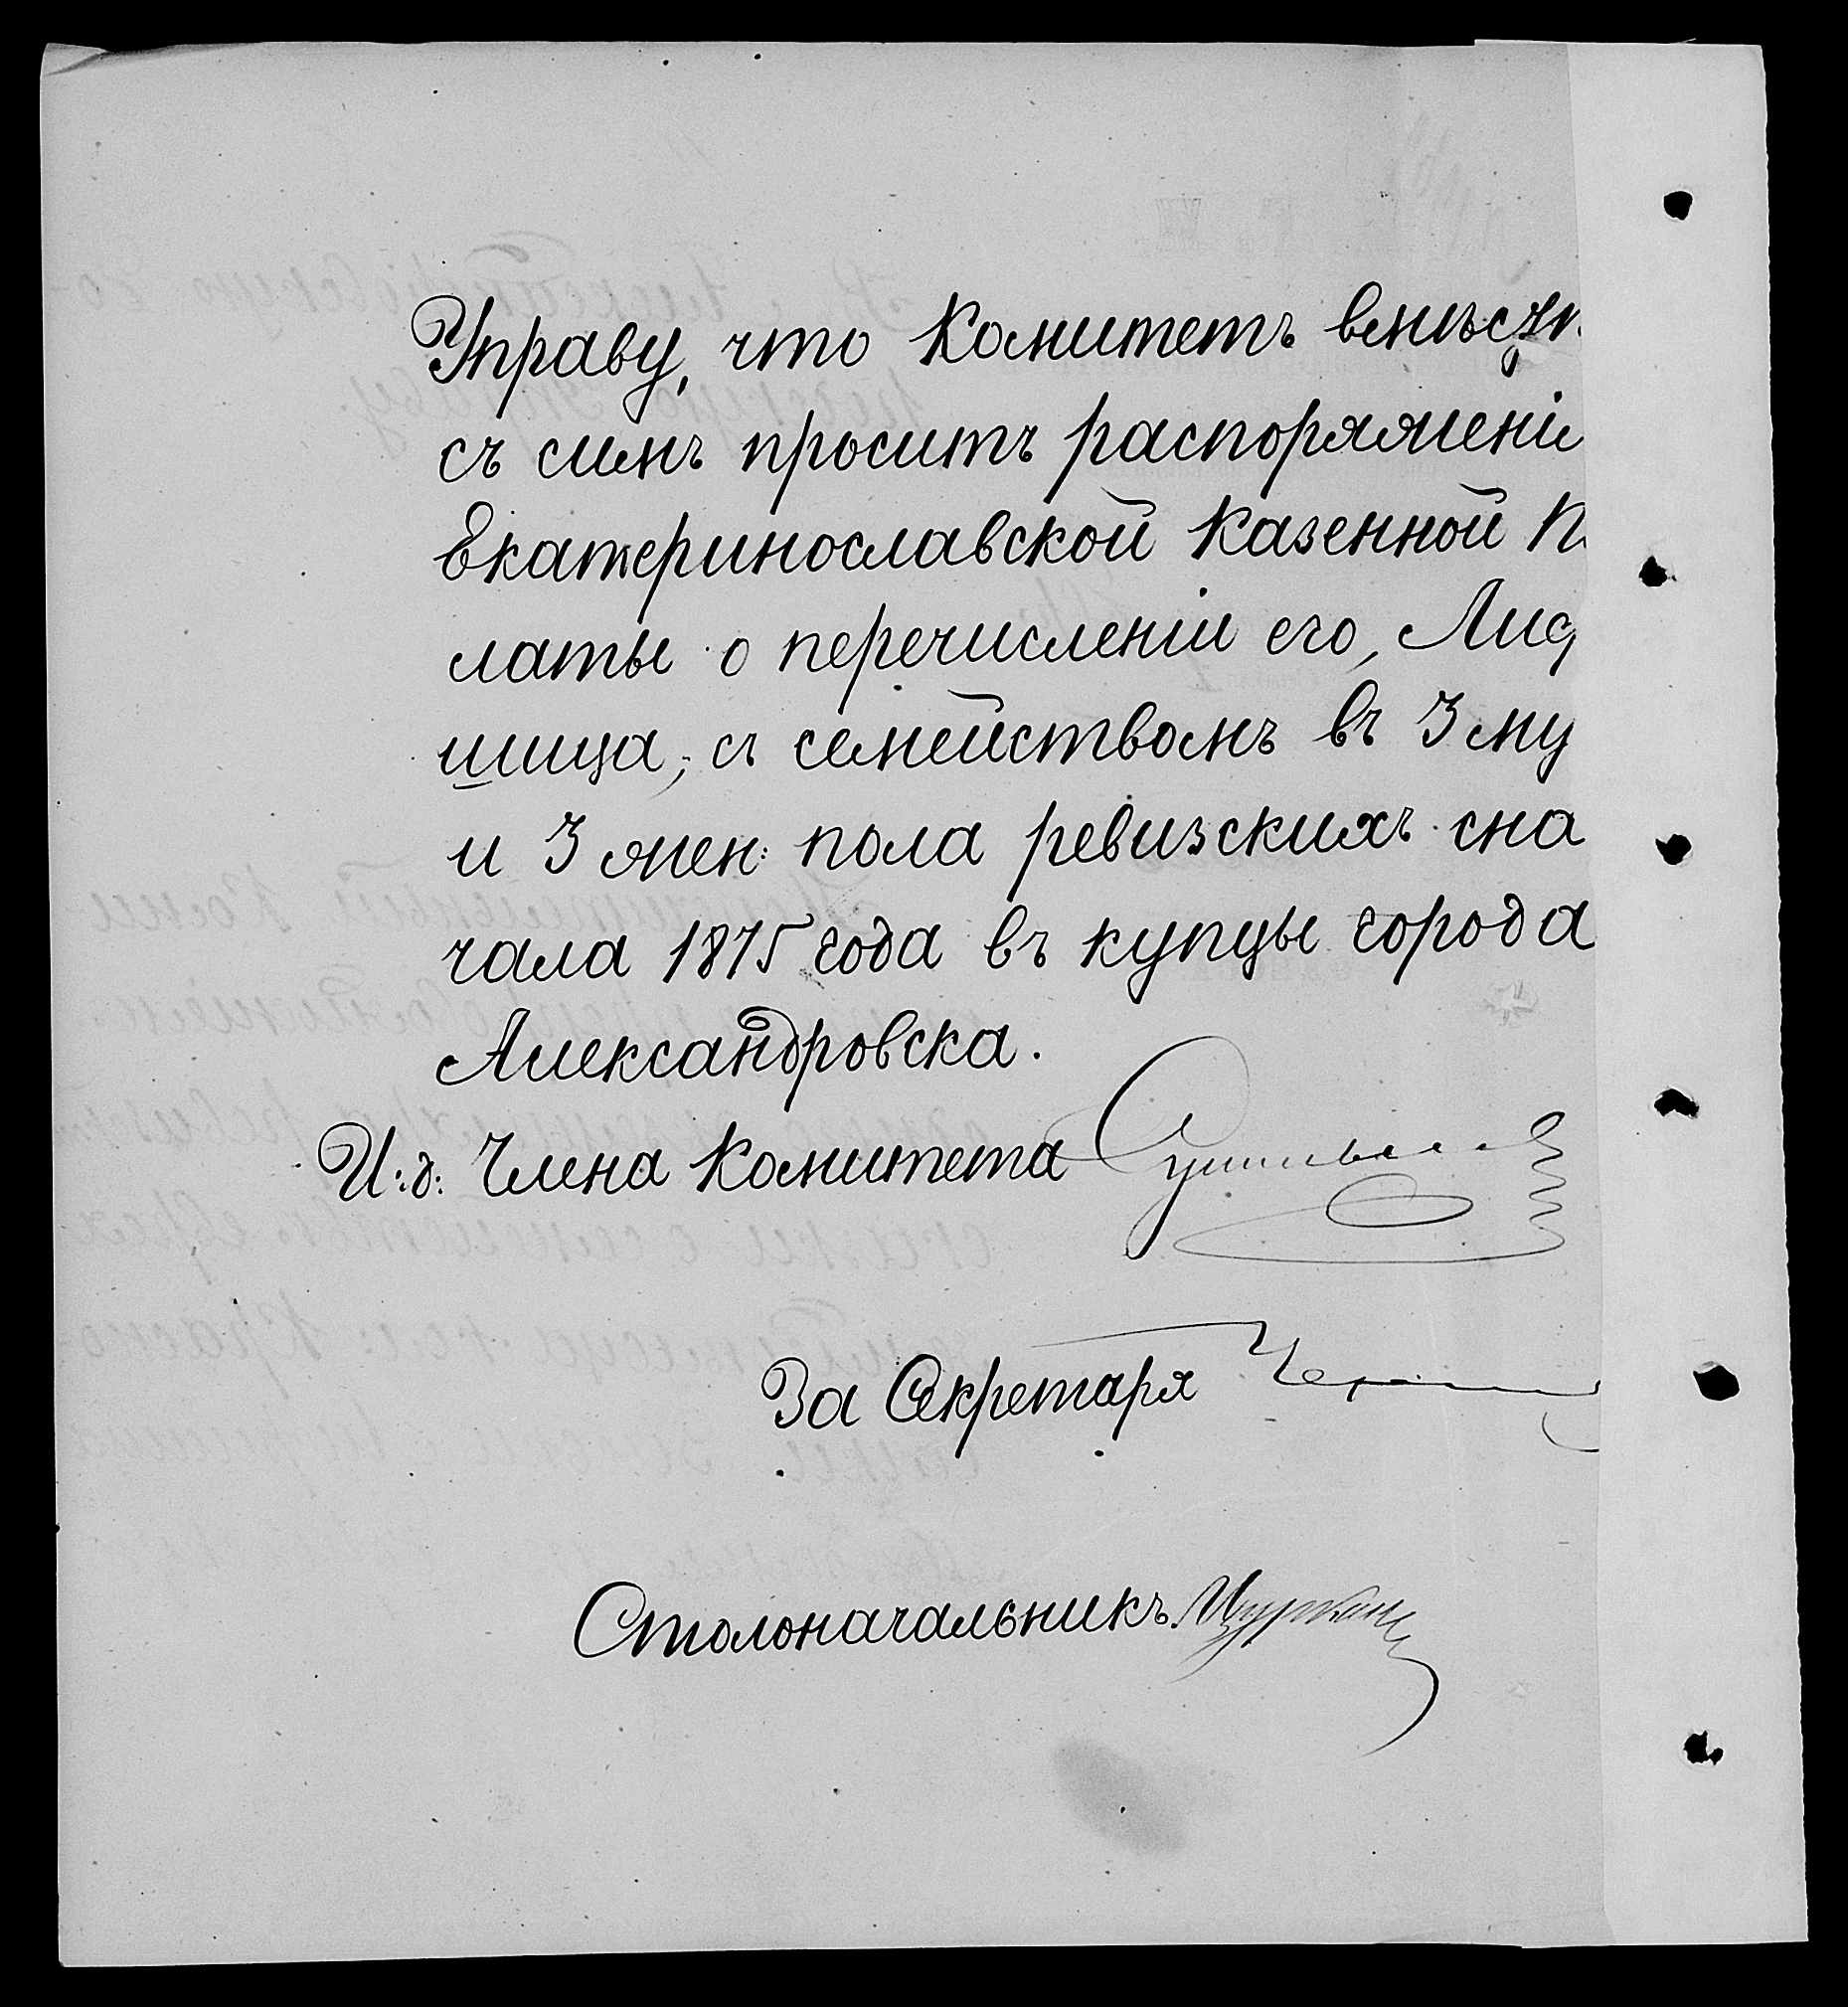 Управу, что Комитетъ вмѣстѣ
съ симъ проситъ распоряженіе
Екатеринославской Казенной П
латы о перечисленіи его, Лиф
шица, съ семействомъ въ 3 му
и 3 жен: пола ревизскихъ сна
чала 1875 года въ купцы города
Александровска.
И: д: Члена Комитета
За Секретаря
Столоначальникъ